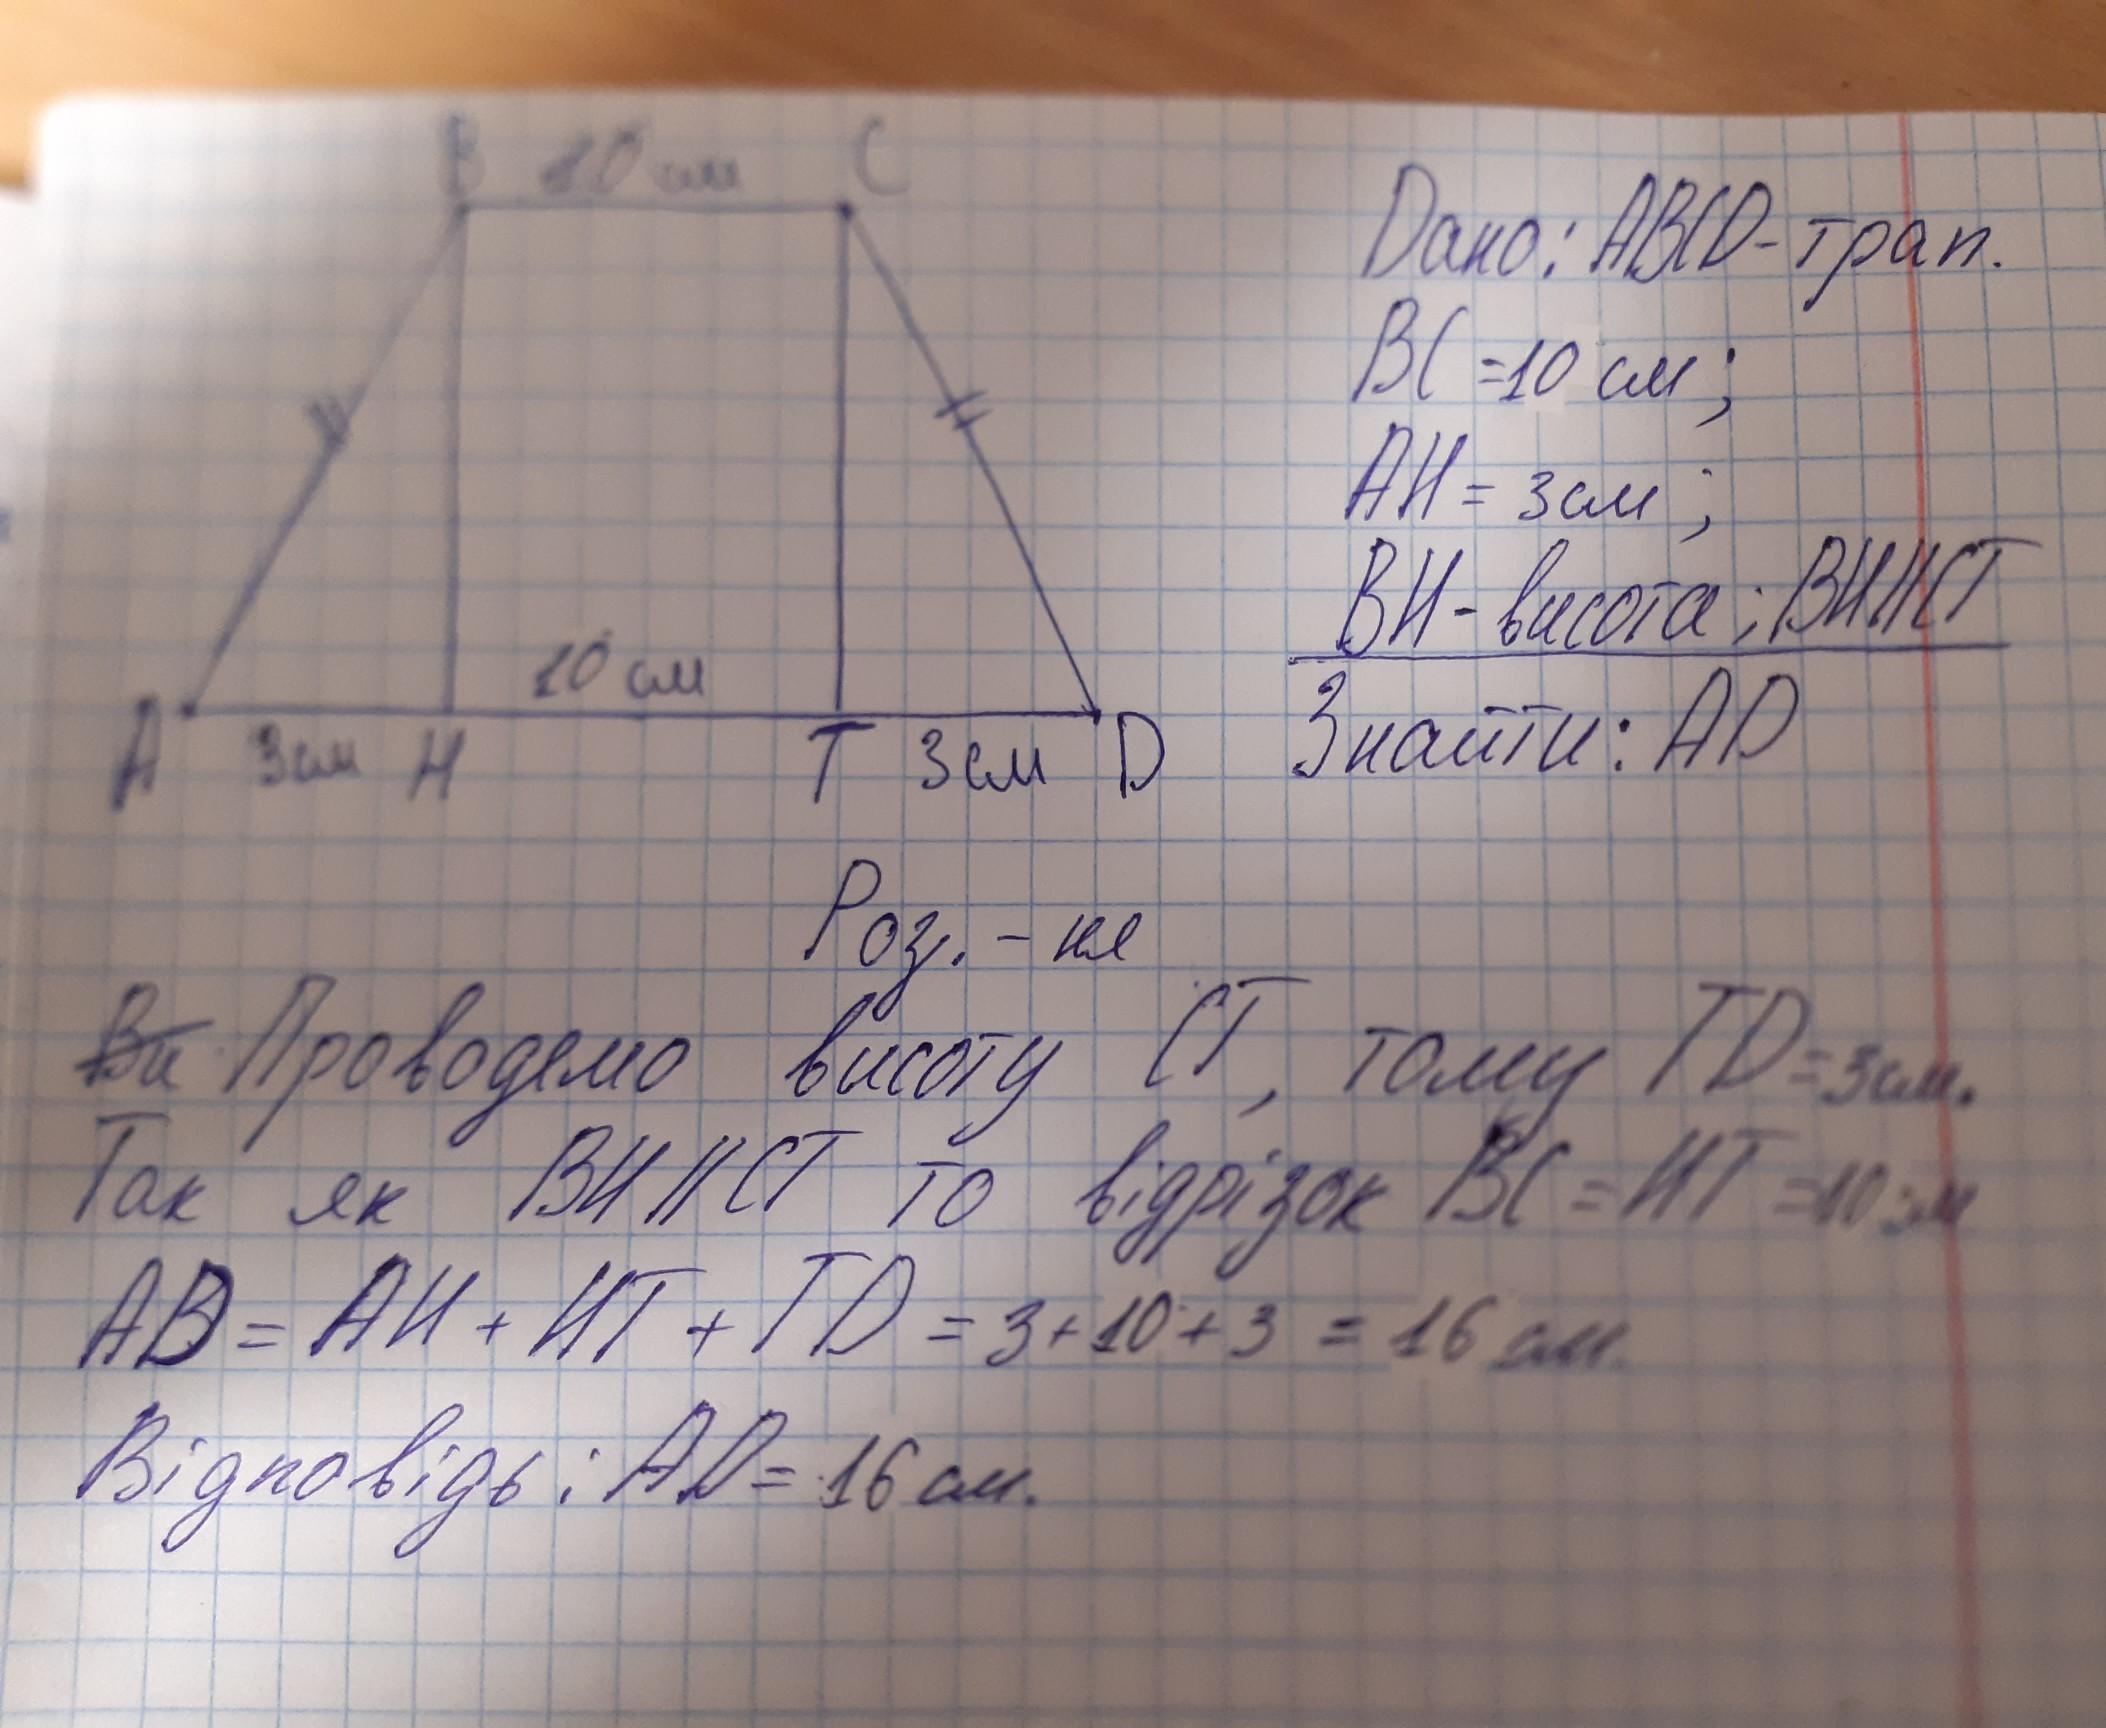 B 10 см C
10 см
A 3см H T 3см D
Дано: ABCD-трап.
BC =10 см;
AH = 3см;
BH-висота; BH||CT
Знайти: AD
Роз. - ня
Ви Проводемо висоту CT, тому TD=3см.
Так як BH || CT то відрізок BC = HT =10 см
AD = AH + HT + TD = 3+10+3 = 16 см.
Відповідь: AD= 16 см.